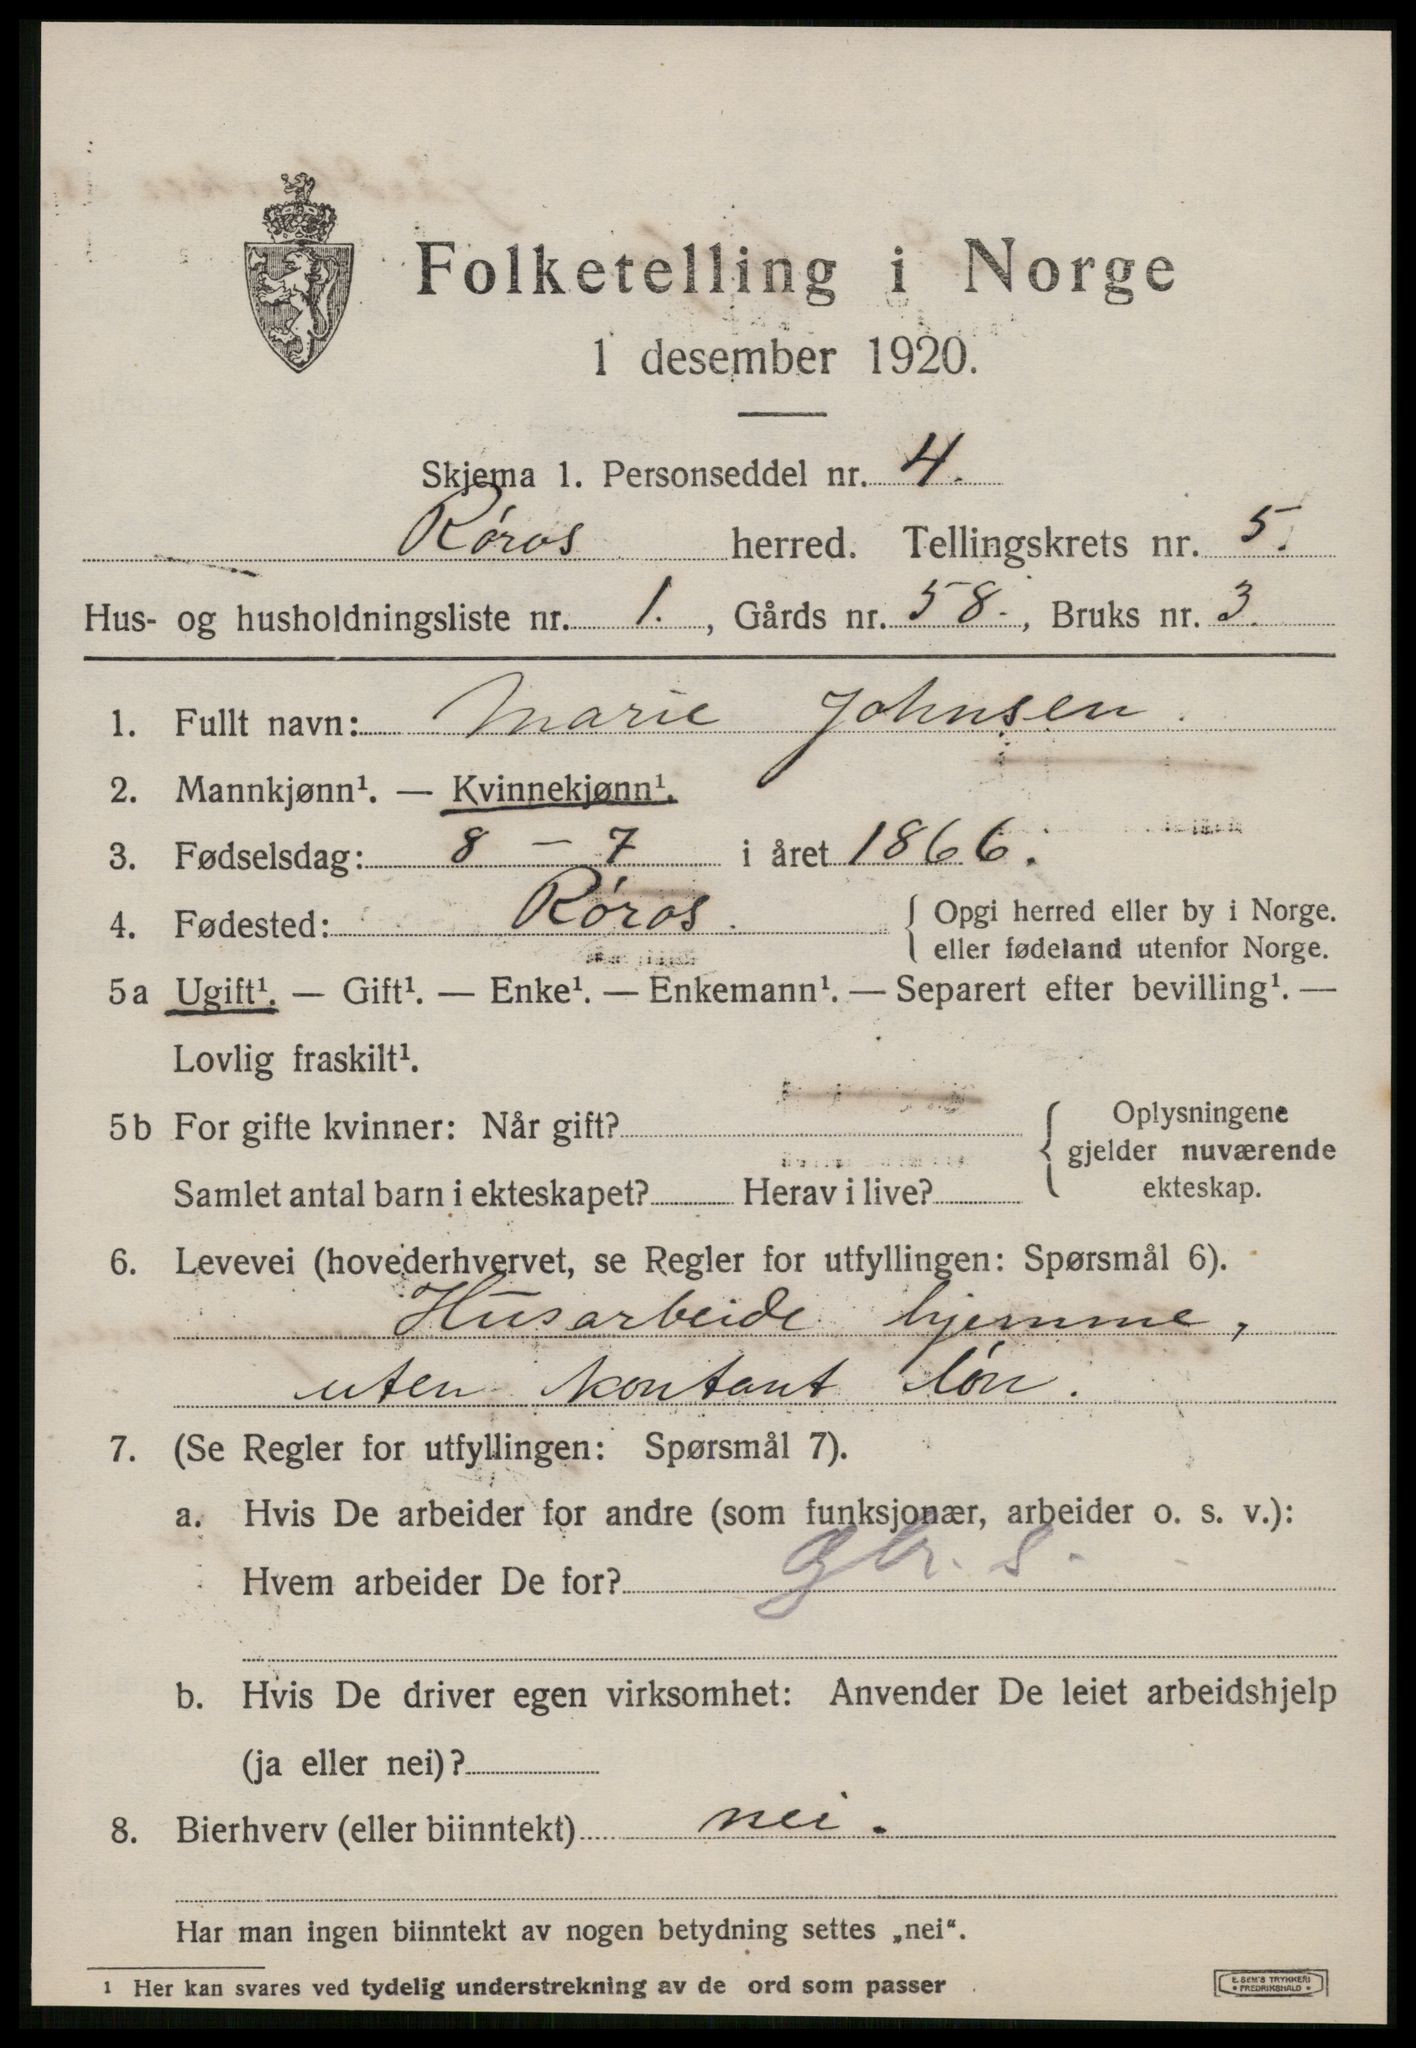 Folketelling i Norge
1 desember 1920.
Skjema 1. Personseddel nr. 4.
Røros herred. Tellingskrets nr. 5.
Hus- og husholdningsliste nr. 1. , Gårds nr. 58. , Bruks nr. 3.
1. Fullt navn: Marie Johnsen.
2. Mannkjønn¹. — Kvinnekjønn¹.
3. Fødselsdag: 8 – 7 i året 1866.
4. Fødested: Røros. { Opgi herred eller by i Norge.
eller fødeland utenfor Norge.
5a Ugift¹. — Gift¹. — Enke¹. — Enkemann¹. — Separert efter bevilling¹. —
Lovlig fraskilt¹.
5b For gifte kvinner: Når gift?
Samlet antal barn i ekteskapet? Herav i live?
{ Oplysningene
gjelder nuværende
ekteskap.
6. Levevei (hovederhvervet, se Regler for utfyllingen: Spørsmål 6).
Husarbeide hjemme,
uten kontant løn.
7. (Se Regler for utfyllingen: Spørsmål 7).
a. Hvis De arbeider for andre (som funksjonær, arbeider o. s. v.):
Hvem arbeider De for?
b. Hvis De driver egen virksomhet: Anvender De leiet arbeidshjelp
(ja eller nei)?
8. Bierhverv (eller biinntekt) nei.
Har man ingen biinntekt av nogen betydning settes „nei“.
¹ Her kan svares ved tydelig understrekning av de ord som passer
E. SEM'S TRYKKERI
• FREDRIKSHALD •